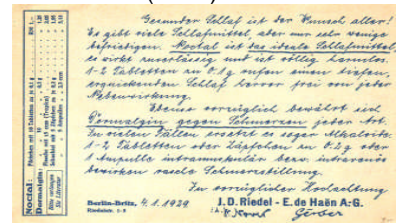 Gesunder Schlaf ist der Wunsch aller!
Es gibt viele Schlafmittel, aber nur sehr wenige
befriedigen. Noctal ist das ideale Schlafmittel,
es wirkt zuverlässig und ist völlig harmlos.
1-2 Tabletten zu 0.1 g rufen einen tiefen,
erquickenden Schlaf hervor frei von jeder
Nebenwirkung.
Ebenso vorzüglich bewährt sich
Dormalgin gegen Schmerzen jeder Art.
In vielen Fällen ersetzt es sogar Alkaloide.
1-2 Tabletten oder Zäpfchen zu 0.2 g oder
1 Ampulle intramuskulär bezw. intravenös
bewirken rasche Schmerzstillung.
In vorzüglicher Hochachtung
Berlin-Britz, 4.1.1929 J. D. Riedel - E. de Haën A.-G.
Riedelstr. 1-3
Noctal:
Dormalgin:
Bitte verlangen
Sie Literatur